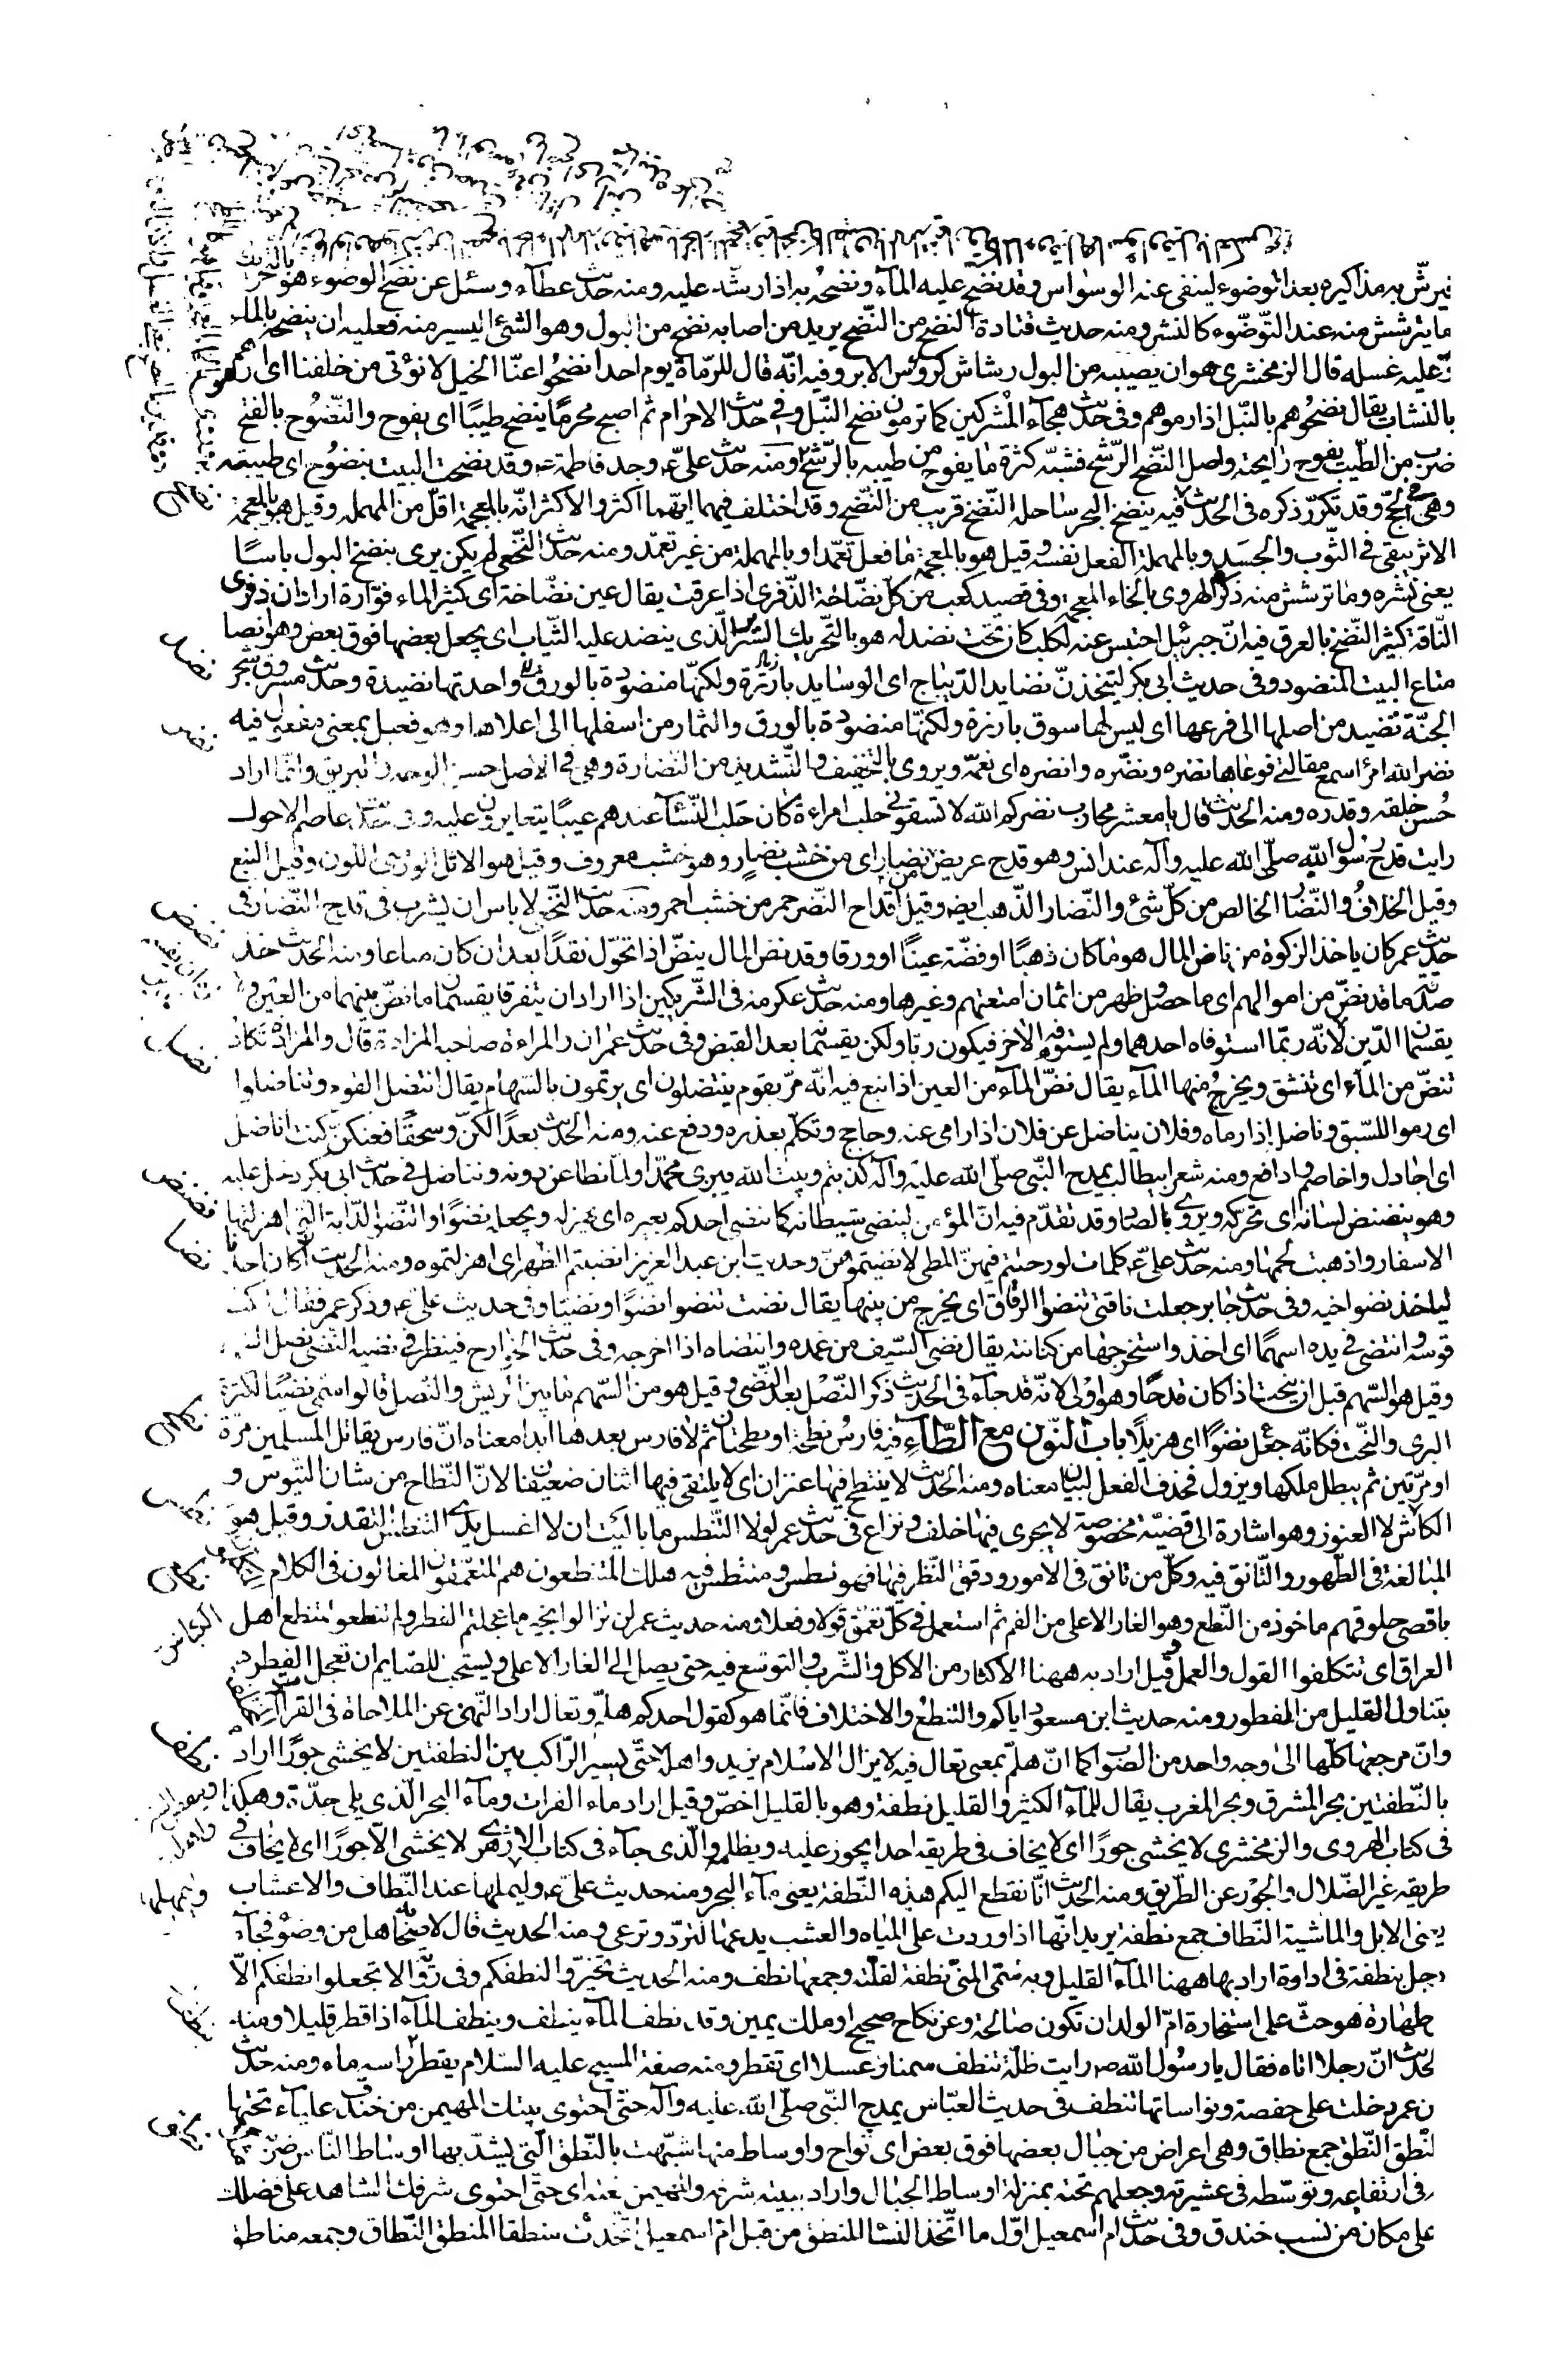 فيرش به مذاكيره بعد الوضوء لينفى عنه الوسواس وقد نضح عليه المآء ونضحه به اذا رشه عليه ومنه حديث عطآء وسئل عن نضح الوضوء هو بالتحريك
ما يترشش منه عند التوضوء كالنشر ومنه حديث قتادة النضح من النضح يريد من اصابه نضح من البول وهو الشئ اليسير منه فعليه ان ينضحه بالماء
عليه غسله قال الزمخشرى هو ان يصيبه من البول رشاش كرؤس الابر وفيه انه قال للرماة يوم احد انضحوا عنا الخيل لا نؤتى من خلفنا اى ارموهم
بالنشاب يقال نضحوهم بالنبل اذا رموهم وفى حديث هجآء المشركين كما ترمون نضح النبل وفى حديث الاحرام ثم اصبح محرما ينضح طيبا اى يفوح والنضوح بالفتح
ضرب من الطيب يفوح رايحته واصل النضح الرشح فشبه كثرة ما يفوح من طيبه بالرشح ومنه حديث على ع وجد فاطمة ع وقد نضحت البيت بنضوح اى طيبته
وهى فى الحج وقد تكرر ذكره فى الحديث فيه ينضخ البحر ساحله النضخ قريب من النضح وقد اختلف فيهما ايهما اكثر والاكثر انه بالمعجمة اقل من المهملة وقيل هو بالمعجمة
الاثر يبقى فى الثوب والجسد وبالمهملة الفعل نفسه وقيل هو بالمعجمة ما فعل تعمدا وبالمهملة من غير تعمد ومنه حديث النخعى لم يكن يرى بنضخ البول باسا
يعنى نشره وما ترشش منه ذكره الهروى بالخاء المعجمة وفى قصيد كعب من كل نضاخة الذفرى اذا عرقت يقال عين نضاخة اى كثير الماء فوارة اراد ان ذفرى
الناقة كثير النضخ بالعرق فيه ان جبرئيل احتبس عنه لكلب كان تحت نضد له هو بالتحريك السرير الذى ينضد عليه الثياب اى يجعل بعضها فوق بعض وهو ايضا
متاع البيت المنضود وفى حديث ابى بكر لتتخذن نضايد الديباج اى الوسايد بارزة ولكنها منضودة بالورق واحدتها نضيدة وحديث مسروق شجر
الجنة نضيد من اصلها الى فرعها اى ليس لها سوق بارزة ولكنها منضودة بالورق والثمار من اسفلها الى اعلاها وهو فعيل بمعنى مفعول فيه
نضر الله امرأ سمع مقالتى فوعاها نضره ونضره وانضره اى نعمه ويروى بالتخفيف والتشديد من النضارة وهى فى الاصل حسن الوجه والبريق وانما اراد
حسن خلقه وقدره ومنه الحديث قال يا معشر محارب نضركم الله لا تسقونى حلب امرءة كان حلب النسآء عندهم عيبا يتعايرون عليه وفى حديث عاصم الاحول
رايت قدح رسول الله صلى الله عليه وآله عند انس وهو قدح عريض من نضار اى من خشب نضار وهو خشب معروف وقيل هو الاثل الورسى اللون وقيل النبع
وقيل الخلاف والنضار الخالص من كل شئ والنضار الذهب ايضا وقيل اقداح النضر حمر من خشب احمر ومنه حديث النخعى لا باس ان يشرب فى قدح النضار فى
حديث عمر كان ياخذ الزكوة من ناض المال هو ما كان ذهبا او فضة عينا او ورقا وقد نض المال ينض اذا تحول نقدا بعد ان كان متاعا ومنه الحديث خذ
صدقة ما قد نض من اموالهم اى ما حصل وظهر من اثمان امتعتهم وغيرها ومنه حديث عكرمة فى الشريكين اذا ارادا ان يتفرقا يقسمان ما نض بينهما من العين ولا
يقسمان الدين لانه ربما استوفاه احدهما ولم يستوفه الاخر فيكون ربا ولكن يقسمانه بعد القبض وفى حديث عمران والمراءة صاحبة المزادة قال والمزادة تكاد
تنض من المآء اى تنشق ويخرج منها المآء يقال نض المآء من العين اذا نبع فيه انه مر بقوم ينتضلون اى يرتمون بالسهام يقال انتضل القوم وتناضلوا
اى رموا للسبق وناضله اذا رماه وفلان يناضل عن فلان اذا رامى عنه وحاجج وتكلم بعذره ودفع عنه ومنه الحديث بعدا لكن وسحقا فعنكن كنت اناضل
اى اجادل واخاصم وادافع ومنه شعر ابيطالب يمدح النبى صلى الله عليه وآله كذبتم وبيت الله يبزى محمد ولما نطاعن دونه ونناضل فى حديث ابى بكر دخل عليه
وهو ينضنض لسانه اى تحركه ويروى بالصاد وقد تقدم فيه ان المؤمن لينضى شيطانه كما ينضى احدكم بعيره اى يهزله ويجعله نضوا والنضو الدابة التى اهزلتها
الاسفار واذهبت لحمها ومنه حديث على ع كلمات لو رحلتم فيهن المطى لانضيتموهن وحديث ابن عبد العزيز انضيتم الظهر اى اهزلتموه ومنه الحديث ان كان احدنا
لياخذ نضو اخيه وفى حديث جابر جعلت ناقتى تنضو الرفاق اى يخرج من بينها يقال نضت تنضو نضوا ونضيا وفى حديث على ع وذكر عمر فقال تنكب
قوسه وانتضى فى يده اسهما اى اخذ واستخرجها من كنانته يقال نضى السيف من غمده وانتضاه اذا اخرجه وفى حديث الخوارج فينظر فى نضيه النضى نصل السهم
وقيل هو السهم قبل ان ينحت اذا كان قدحا وهو اولى لانه قد جآء فى الحديث ذكر النصل بعد النضى وقيل هو من السهم ما بين الريش والنصل قالوا سمى نضيا لكثرة
البرى والنحت فكانه جعل نضوا اى هزيلا باب النون مع الطآء فيه فارس نطحة او نطحتان ثم لا فارس بعدها ابدا معناه ان فارس يقاتل المسلمين مرة
او مرتين ثم يبطل ملكها ويزول فحذف الفعل لبيان معناه ومنه الحديث لا ينتطح فيها عنزان اى لا يلتقى فيها اثنان ضعيفان لان النطاح من شان التيوس و
الكباش لا العنوز وهو اشارة الى قضية مخصوصة لا يجرى فيها خلف ونزاع فى حديث عمر لولا التنطس ما باليت ان لا اغسل يدى التنطس التقذر وقيل هو
المبالغة فى الطهور والتانق فيه وكل من تانق فى الامور ودقق النظر فيها فهو نطس ومتنطس فيه هلك المتنطعون هم المتعمقون المغالون فى الكلام
باقصى حلوقهم ماخوذ من النطع وهو الغار الاعلى من الفم ثم استعمل فى كل تعمق قولا وفعلا ومنه حديث عمر لن تزالوا بخير ما عجلتم الفطر ولم تنطعوا تنطع اهل
العراق اى تتكلفوا القول والعمل وقيل اراد به ههنا الاكثار من الاكل والشرب والتوسع فيه حتى يصل الى الغار الاعلى ويستحب للصايم ان تعجل الفطر
بتناول القليل من الفطور ومنه حديث ابن مسعود اياكم والتنطع والاختلاف فانما هو كقول احدكم هلم وتعال اراد النهى عن الملاحاة فى القرآن
وان مرجعها كلها الى وجه واحد من الصواب كما ان هلم بمعنى تعال فيه لا يزال الاسلام يزيد واهله حتى يسير الراكب بين النطفتين لا يخشى جورا اراد
بالنطفتين بحر المشرق وبحر المغرب يقال للمآء الكثير والقليل نطفة وهو بالقليل اخص وقيل اراد ماء الفرات ومآء البحر الذى يلى جدة وهكذا
فى كتاب الهروى والزمخشرى لا يخشى جورا اى لا يخاف فى طريقه احدا يجور عليه ويظلمه والذى جآء فى كتاب الازهرى لا يخشى الا جورا اى لا يخاف فى
طريقه غير الضلال والجور عن الطريق ومنه الحديث انا نقطع اليكم هذه النطفة يعنى مآء البحر ومنه حديث على ع وليمهلها عند النطاف والاعشاب
يعنى الابل والماشية النطاف جمع نطفة يريد انها اذا وردت على المياه والعشب يدعها لترد وترعى ومنه الحديث قال لاصحابه هل من وضوء فجآء
رجل بنطفة فى اداوة اراد بها ههنا المآء القليل وبه سمى المنى نطفة لقلته وجمعها نطف ومنه الحديث تخيروا لنطفكم وفى رواية لا تجعلوا نطفكم الا
طهارة هو حث على استخارة ام الولد ان تكون صالحة وعن نكاح صحيح او ملك يمين وقد نطف المآء ينطف وينطف المآء اذا قطر قليلا ومنه
الحديث ان رجلا اتاه فقال يا رسول الله ص رايت ظلة تنطف سمنا وعسلا اى تقطر ومنه صفة المسيح عليه السلام يقطر راسه ماء ومنه حديث
ابن عمر دخلت على حفصة ونواساتها تنطف فى حديث العباس يمدح النبى صلى الله عليه وآله حتى احتوى بيتك المهيمن من خندف عليآء تحتها
النطق النطق جمع نطاق وهى اعراض من جبال بعضها فوق بعض اى نواح واوساط منها شبهت بالنطق التى يشد بها اوساط الناس ضربه مثلا
له فى ارتفاعه وتوسطه فى عشيرته وجعلهم تحته بمنزلة اوساط الجبال واراد ببيته شرفه والمهيمن نعته اى حتى احتوى شرفك الشاهد على فضلك
على مكان من نسب خندف وفى حديث ام اسمعيل اول ما اتخذ النسا المنطق من قبل ام اسمعيل اتخذت منطقا المنطق النطاق وجمعه مناطق
نضخ
نضد
نضر
نضض
نضل
نضنض
نضا
نطح
نطس
نطع
نطف
نطق